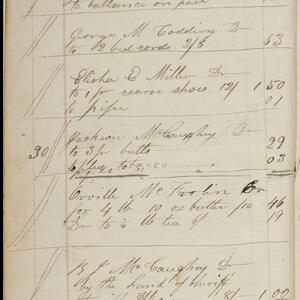 to ballance on pair
George M Codding Dr
to 2 bed cords 2/8 63
Elisher C Miller Dr
to 1 pr coarse shoes 12/ 1 50
to pipe 01
Jackson McCaughey Dr
30 to 3 pr butts 29
tobacco " 03
Orville McFarlin Cr
4 lb 10 oz butter /10 46
Dr to ¼ lb tea 19
McCaughey Dr
by the hand of
8/ 1 00